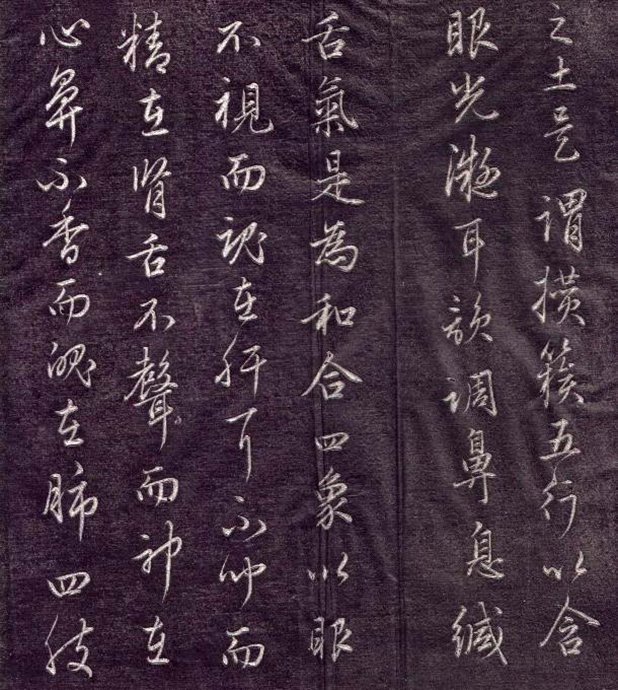 之土是謂攅簇五行以含
眼光凝耳韻调鼻息緘
舌氣是為和合四象以眼
不視而魂在肝耳不聞而
精在腎舌不聲而神在
心鼻不香而魄在肺四肢